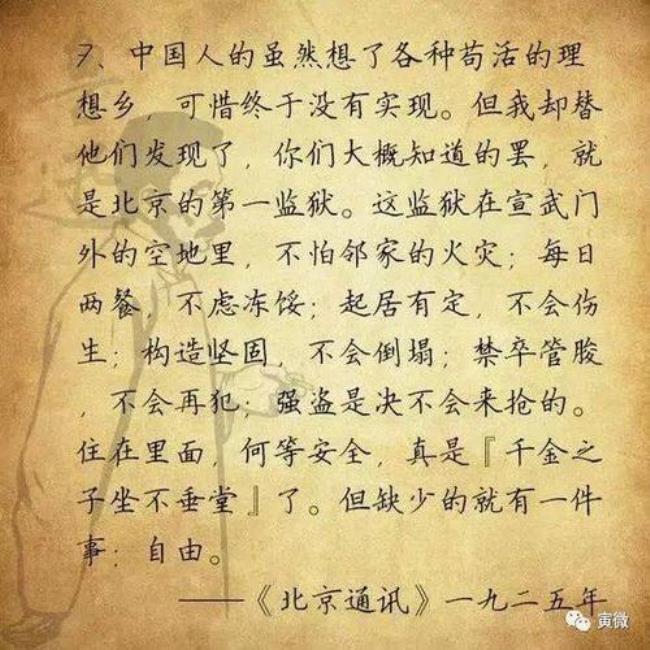 7、中国人的虽然想了各种苟活的理
想乡，可惜终于没有实现。但我却替
他们发现了，你们大概知道的罢，就
是北京的第一监狱。这监狱在宣武门
外的空地里，不怕邻家的火灾；每日
两餐，不虑冻馁；起居有定，不会伤
生；构造坚固，不会倒塌；禁卒管胺
，不会再犯；强盗是决不会来抢的。
住在里面，何等安全，真是『千金之
子坐不垂堂』了。但缺少的就有一件
事：自由。
——《北京通讯》一九二五年
寅微